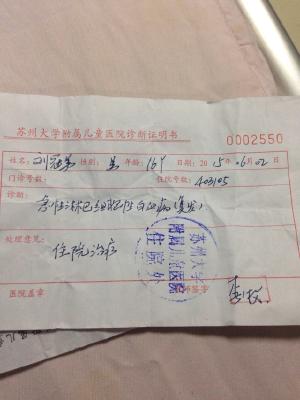 苏州大学附属儿童医院诊断证明书
0002550
姓名：刘冠 性别：男 年龄：16Y 日期：2015.06.02
门诊号数： 住院号数：403105
诊断：
急性淋巴细胞性白血病(复发)
处理意见：
住院治疗
苏州大学
附属儿童医院
住院处
医院盖章 医师签字